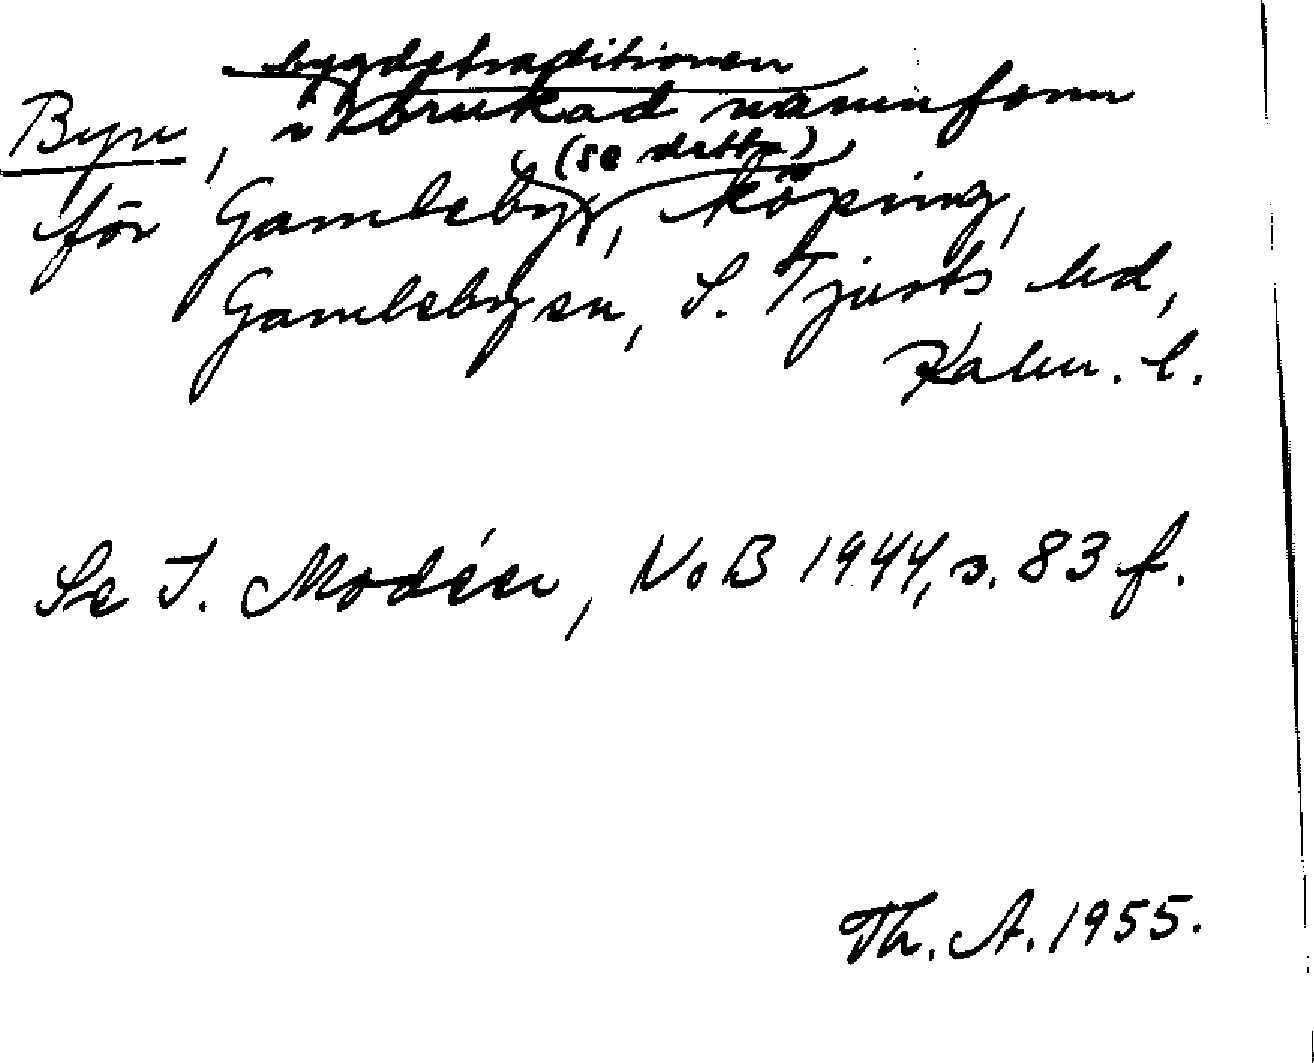 Byn, i bygdetraditionen brukad namnform
för Gamleby (se detta), köping,
Gamleby sn, S. Tjusts hd,
Kalm. l.
Se I. Modéer, NoB 1944, s. 83 f.
Th. A. 1955.